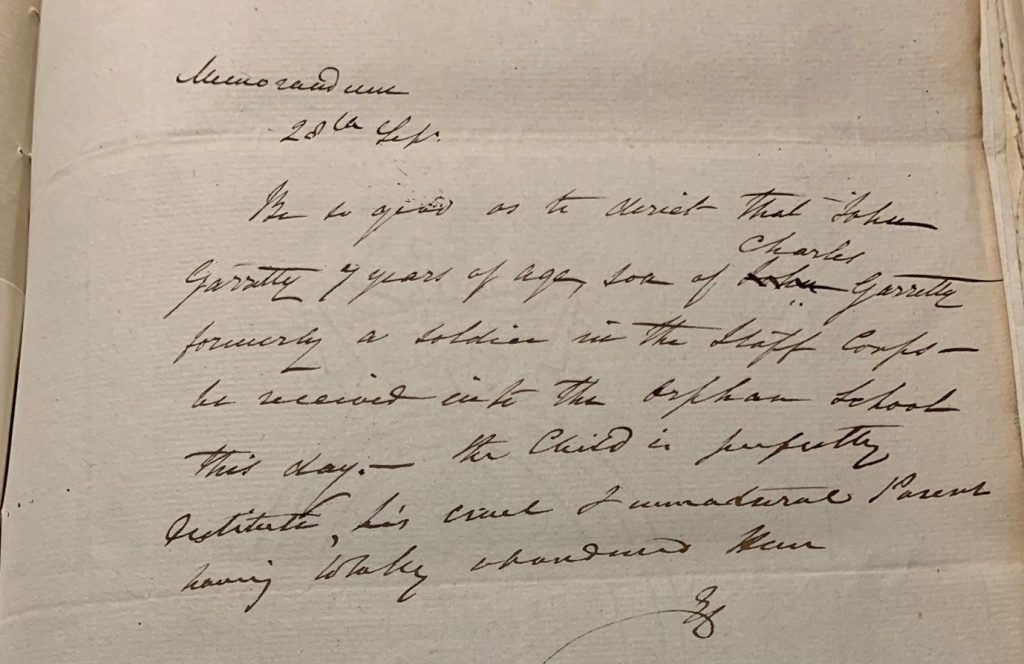 Memorandum
28th Sepr.
Be so good as to direct that John
Charles
Garretty 7 years of age, son of John Garretty
formerly a soldier in the Staff Corps —
be received into the Orphan School
this day. — the Child is perfectly
destitute, his cruel & unnatural Parent
having totally abandoned Him